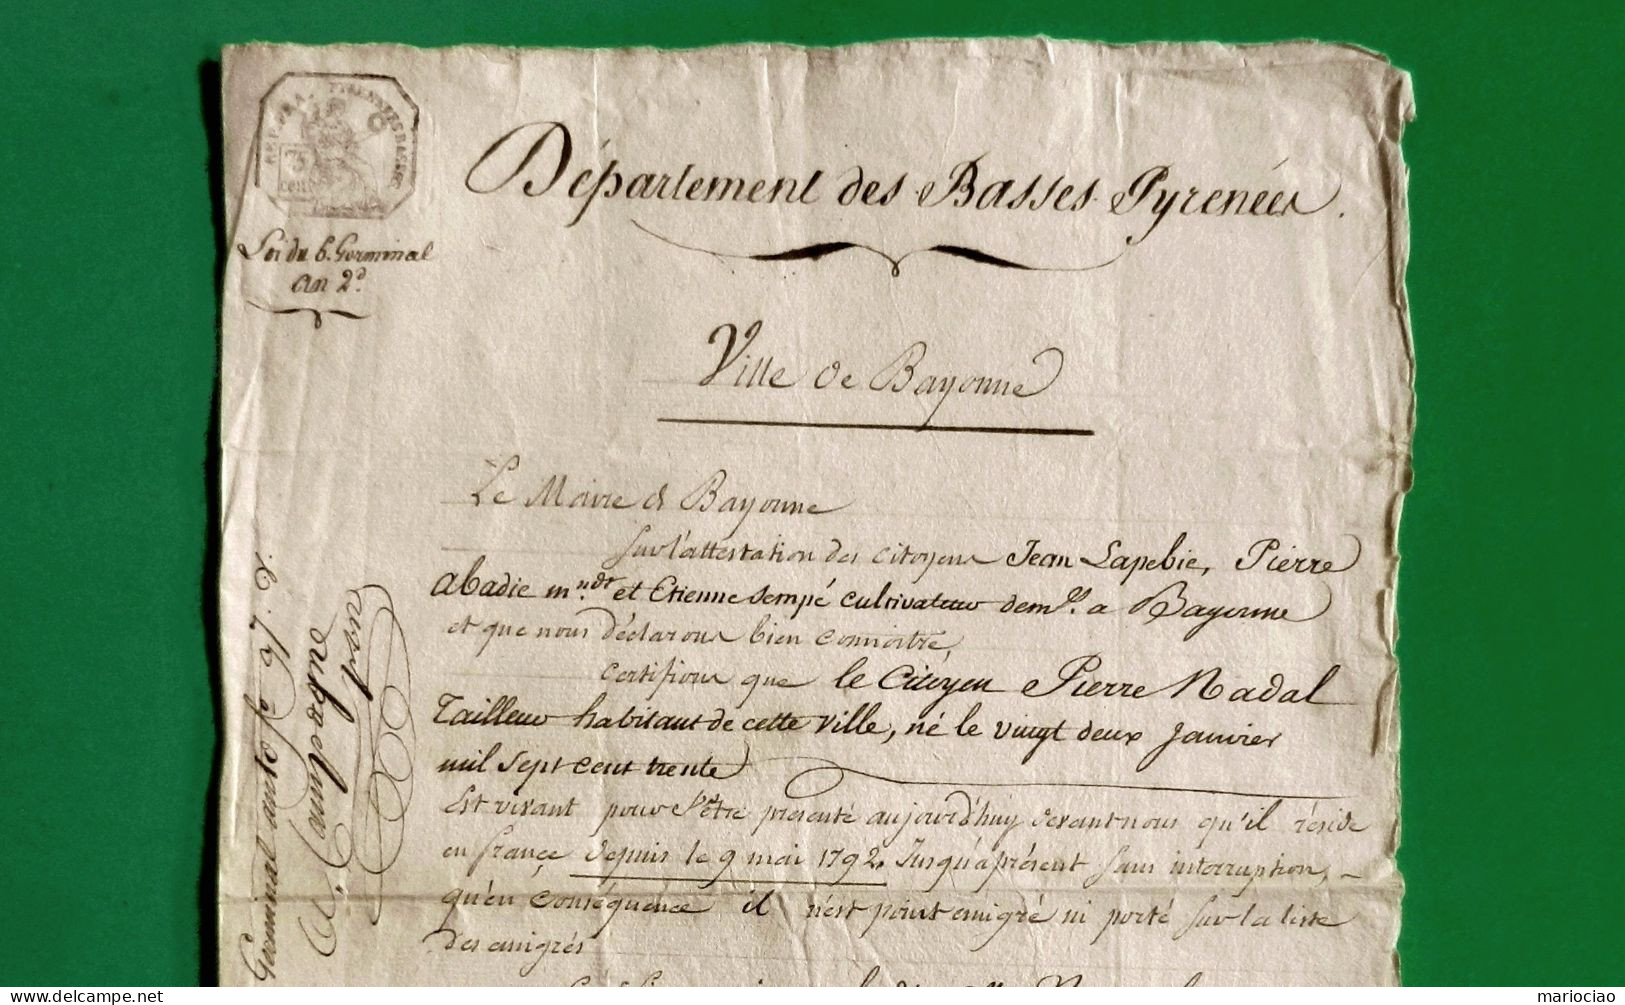 REP. FRA. PYRENEES BASSES
75
cent
Loi du 6. Germinal
an 2.d
Département des Basses Pyrenées.
Ville de Bayonne
Le Maire de Bayonne
sur l'attestation des citoyens Jean Lapebie, Pierre
abadie m.nd et Etienne sempé cultivateur dem.ts a Bayonne
et que nous déclarons bien connoitre,
certifions que le Citoyen Pierre Nadal
Tailleur habitant de cette ville, né le vingt deux Janvier
mil sept cent trente
Est vivant pour s'être presenté aujourd'huy devant nous qu'il réside
en france depuis le 9 mai 1792. Jusqu'aprésent sans interruption,
qu'en conséquence il n'est point emigré ni porté sur la liste
des emigrés
Germinal
mariociao